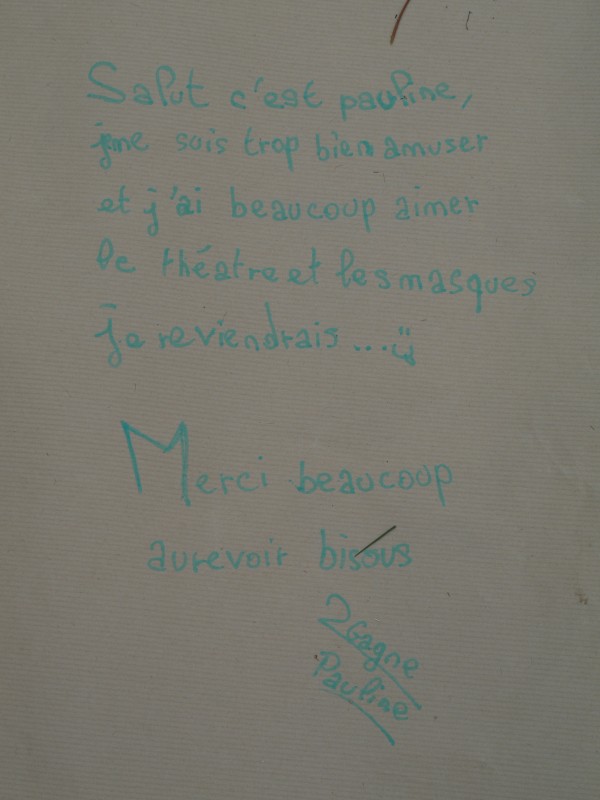 Salut c'est pauline,
jme suis trop bien amuser
et j'ai beaucoup aimer
le théatre et les masques
je reviendrais...
Merci beaucoup
aurevoir bisous
2Gagne
Pauline